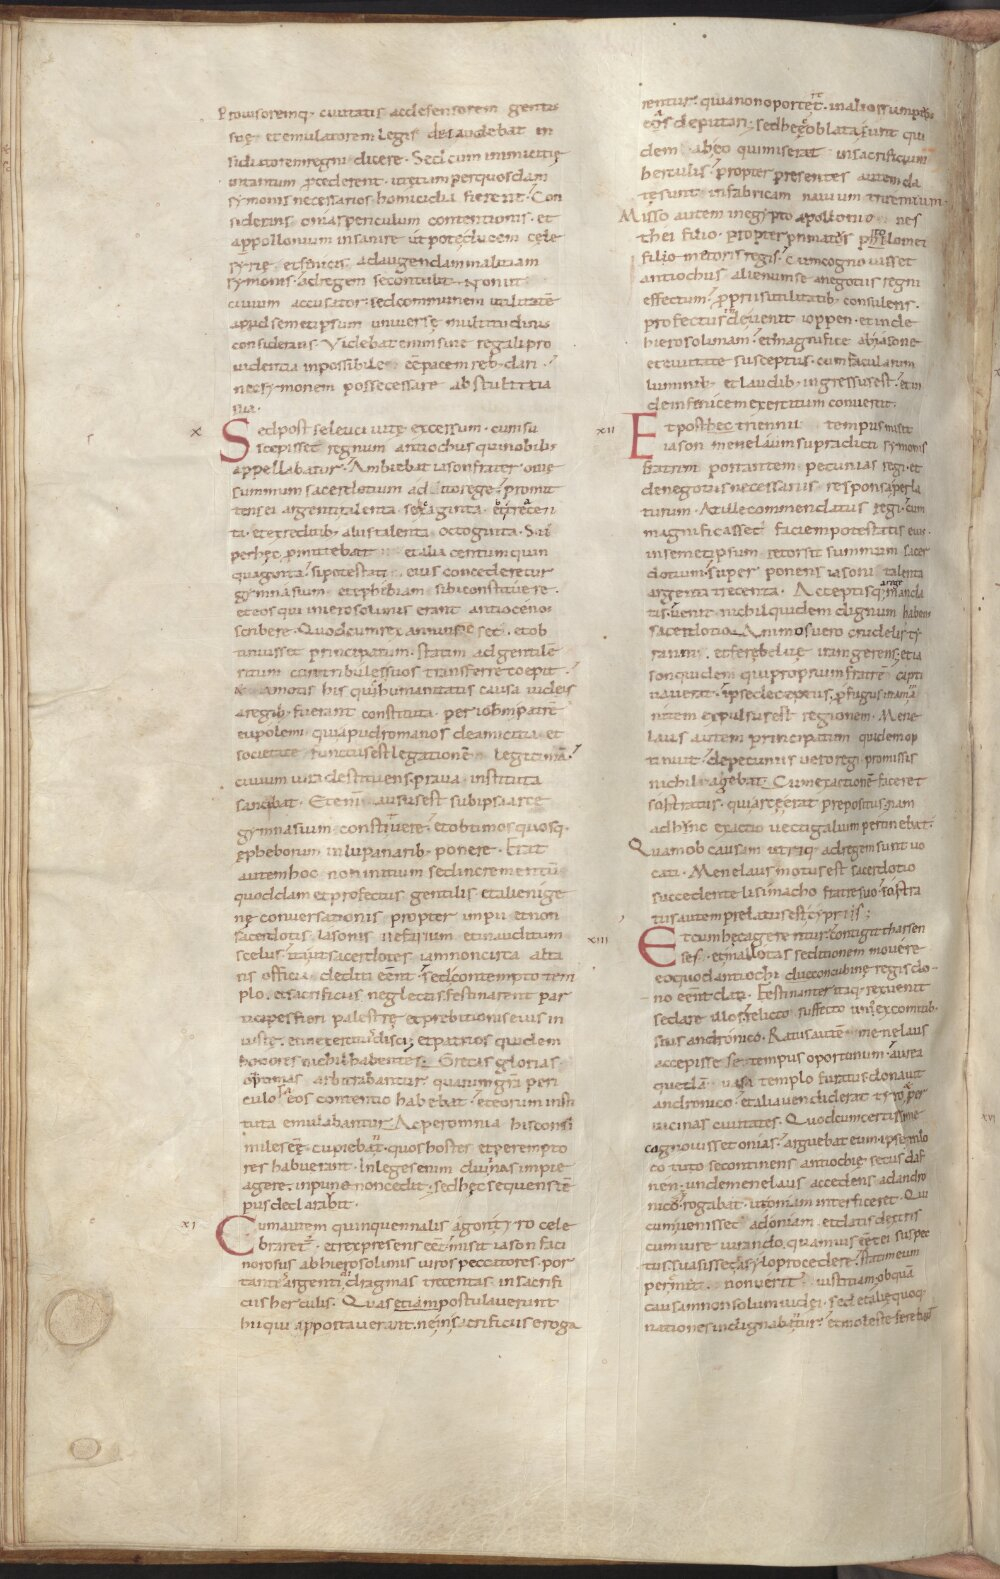 Provisoremq; civitatis acdefensorem gentis
suę et emulatorem legis dei audebat in
sidiatorem regni dicere. Sed cum inimicitię
intantum procederent ut etiam per quosdam
symonis necessarios homicidia fierent. Con
siderans onias periculum contentionis. et
appollonium insanire utpote ducem cęle
syrię et fenicis adaugendam malitiam
symonis. adregem secontulit. Non ut
civium accusator. sed communem utilitatē
apud semetipsum universę multitudinis
considerans. Videbat enim sine regali pro
videntia inpossibile eē pacem reb; dari.
nec symonem posse cessare ab stultitia
sua.
X Sed post seleuci vitę excessum. cum su
scepisset regnum antiochus qui nobilis
appellabatur. Ambiebat iason frater onię
summum sacerdotium adito rege. promit
tens ei argenti talenta sexaginta et trecen
ta. et ex reditib; aliis talenta octoginta. Su
perhęc promittebat et alia centum quin
quaginta. si potestati eius concederetur
gymnasium et ephibiam sibi constituere.
et eos qui in ierosolimis erant antioceno
scribere. Quod cum rex annuisset. et ob
tinuisset principatum. statim ad gentilē
ritum contribules suos transferre coepit.
& amotis his quę humanitatis causa iudeis
a regib; fuerant constituta. per iohīm patrē
eupolemi. qui apud romanos de amicitia et
societate functus est legationē legitimā.
civium iura destituens. prava instituta
sancibat. Etenī ausus est sub ipsa arce
gymnasium constituere. et obtimos quosq.
ępheborum in lupanarib; ponere. Erat
autem hoc non initium sed incrementū
quoddam et profectus gentilis et alienige
nę conversationis propter impii et non
sacerdotis iasonis nefarium et inauditum
scelus. ita ut sacerdotes iam non circa alta
ris officia dediti eēnt. sed contempto tem
plo. et sacrificiis neglectis. festinarent par
ticipes fieri palestrę et prebitionis eius in
iustę. et in exercitiis disci. et patrios quidem
honores nichil habentes. Grecas glorias
optimas arbitrabantur quarum grā peri
culosa eos contentio habebat. et eorum insti
tuta emulabantur. Ac per omnia his consi
miles eē cupiebant. quos hostes et perempto
res habuerant. In leges enim divinas impie
agere inpune non cedit. sed hęc sequens tē
pus declarabit.
XI Cum autem quinquennalis agon tyro cele
braretur. et rex presens eēt. misit iason faci
norosus ab hierosolimis viros peccatores. por
tantes argenti dragmas trecentas. in sacrifi
cius herculis. Quas etiam postulaverunt
hii qui apportaverant. ne in sacrificiis eroga
rentur. quia non oporteret. in alios sumptus
eas deputari. sed hęc oblata sunt qui
dem ab eo qui miserat in sacrificium
herculis. propter presentes autem da
tę sunt in fabricam navium triremium.
Misso autem in egypto apollonio nes
thei filio. propter primates philometi
filio metoris regis. Cum cognovisset
antiochus alienum se a negotiis regni
effectum. propriis utilitatib; consulens.
profectus inde venit ioppen. et inde
hierosolimam. et magnifice ab iasone
et civitate susceptus. cum facularum
luminib; et laudib; ingressus est. et in
de in fenicem exercitum convertit.
XII Et post hec triennii tempus misit
iason menelaum supradicti symonis
fratrem portantem pecunias regi. et
de negotiis necessariis responsa perla
turum. At ille commendatus regi. cum
magnificasset faciem potestatis eius.
in semetipsum retorsit summum sacer
dotium. super ponens iasoni talenta
argenti trecenta. Acceptisq; a rege manda
tis. venit nichil quidem dignum habens
sacerdotio. Animos vero crudelis ty
ranni. et ferę beluę iram gerens. et ia
son quidem qui proprium fratrē capti
vaverat. ipse deceptus, profugus in amma
nitem expulsus est regionem. Mene
laus autem principatum quidem op
tinuit. de pecuniis vero regi promissis
nichil agebat. Cum exactionē faceret
sostratus. qui arcę erat prepositus. nam
ad hunc exactio vectigalium pertinebat.
Quam ob causam utriq; ad regem sunt vo
cati. Menelaus motus est sacerdotio
succedente lisimacho fratre suo. sostra
tus autem prelatus est cypriis;
XIII Et cum hęc agerentur. contigit tharsen
ses. et mallotas seditionem movere
eo quod antiochi dię concubinę regis do-
no eēnt dati. Festinanter itaq; rex venit
sedare illos. relicto suffecto uno ex comitib;
suis andronico. Ratus autē menelaus
accepisse se tempus oportunum. aurea
quedā vasa templo furatus. donavit
andronico. et alia vendiderat tyro. et per
vicinas civitates. Quod cum certissime
cognovisset onias. arguebat eum. ipse in lo
co tuto se continens antiochię secus daf
nen. unde menelaus accedens ad andro
nicum. rogabat. ut oniam interficeret. Qui
cum venisset ad oniam. et datis dextris
cum iure iurando. quamvis eēt ei suspec
tus. suasisset de asylo procedere. statim eum
peremit. non veritus iustitiam. ob quā
causam non solum iudei. sed et alię quoq;
nationes indignabantur. et moleste ferebant